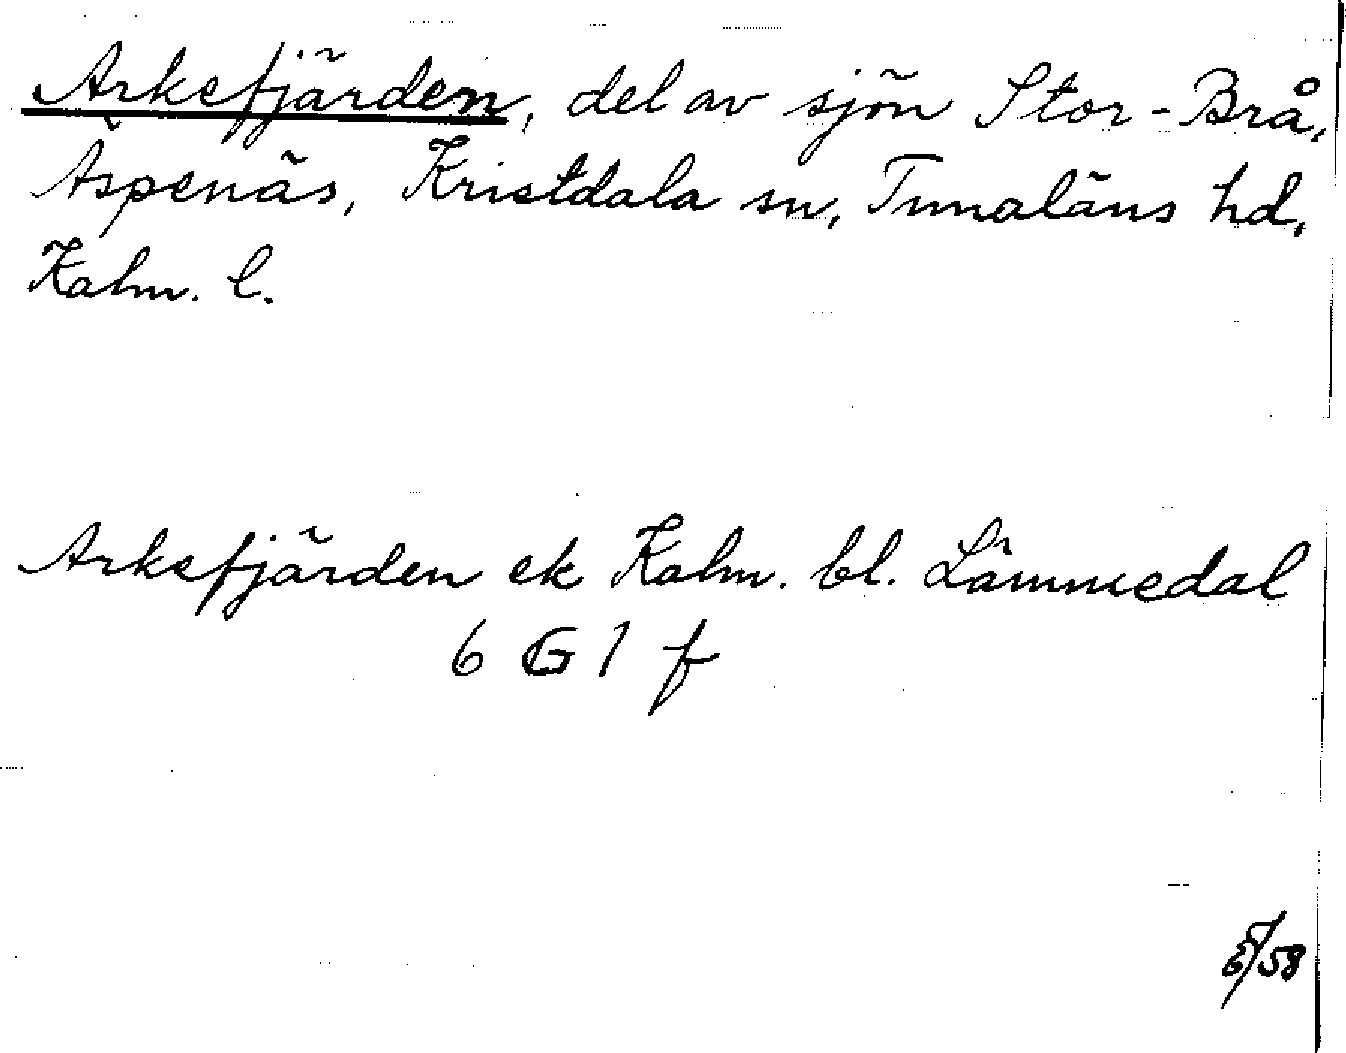 Arkefjärden, del av sjön Stor-Brå,
Äspenäs, Kristdala sn, Tunaläns hd,
Kalm. l.
Arkefjärden ek Kalm. bl. Lämmedal
6 G 1 f
/58